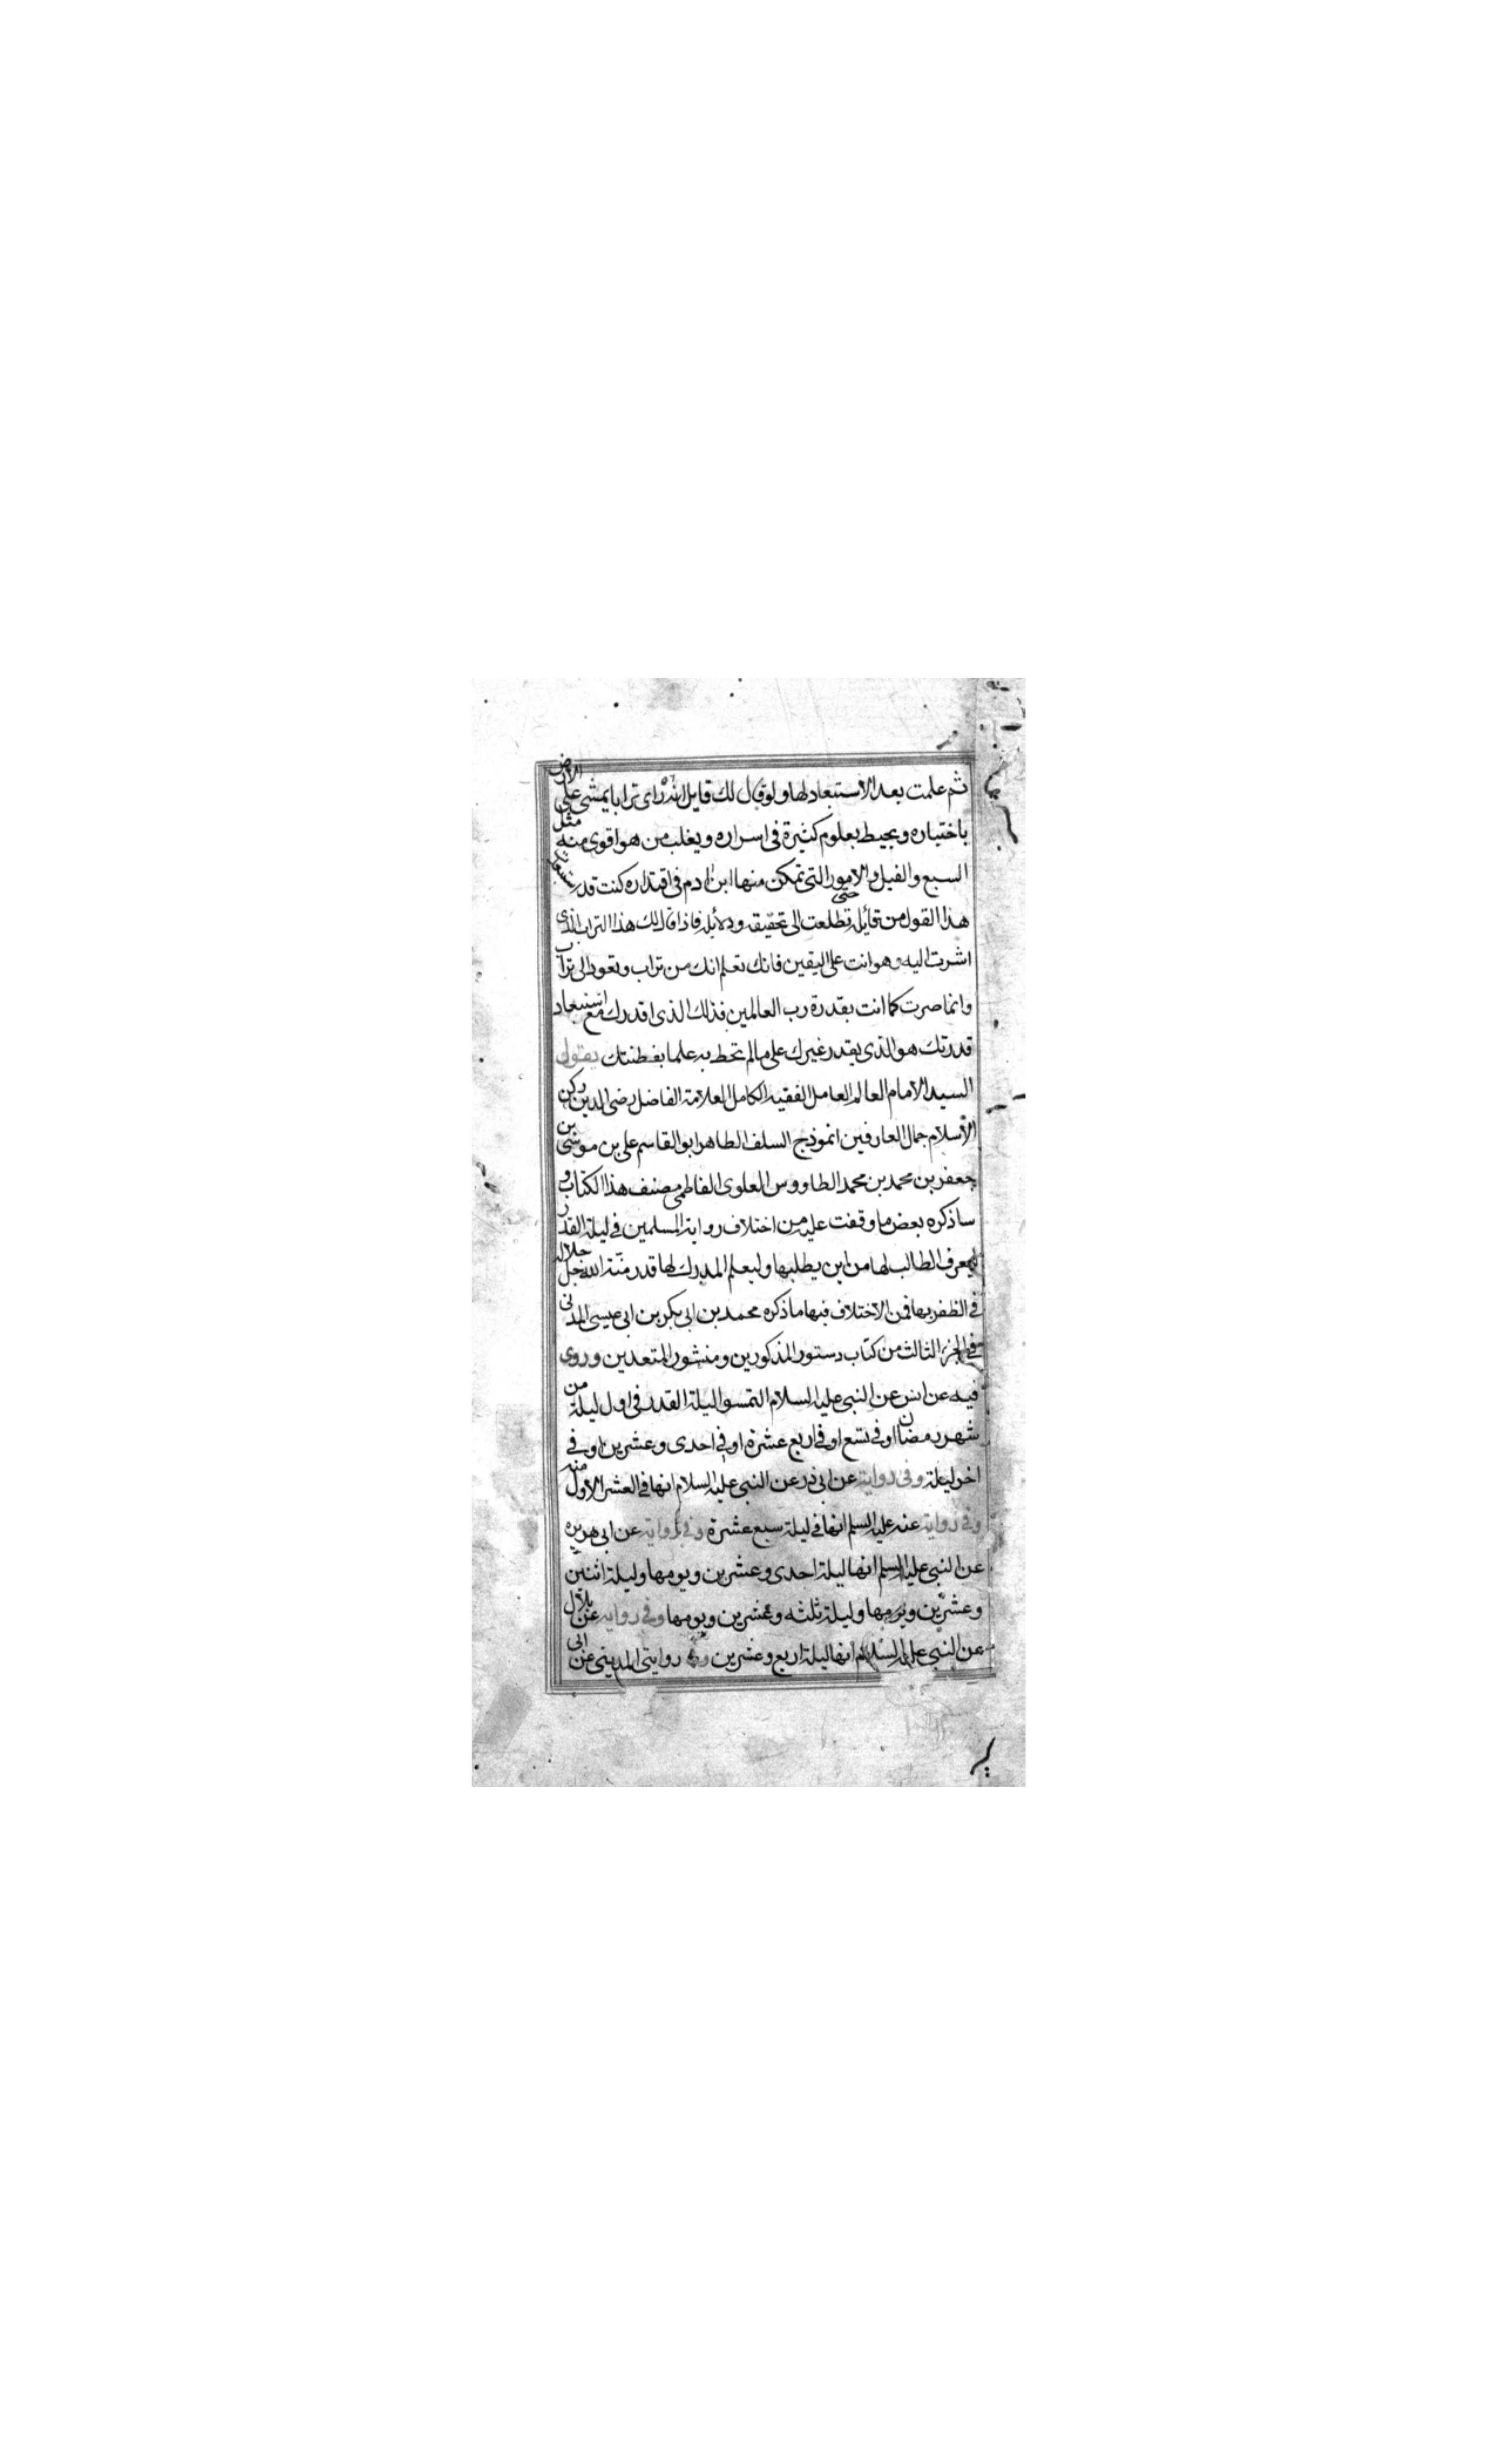 ثم علمت بعد الاستبعاد لها ولو قال لك قايل انه راى ترابا يمشى على الارض
باختياره ويحيط بعلوم كثيرة فى اسراره ويغلب من هو اقوى منه مثل
السبع والفيل والامور التى تمكن منها ابن ادم فى اقتداره كنت قد تستبعد
هذا القول من قائله حتى تطلعت الى تحقيقه ودلائله فاذا قال لك هذا التراب الذى
اشرت اليه وهو انت على اليقين فانك تعلم انك من تراب وتعود الى تراب
وانما صرت كما انت بقدرة رب العالمين فذلك الذى اقدرك مع استبعاد
قدرتك هو الذى يقدر غيرك على مالم تحط به علما بفطنتك يقول
السيد الامام العالم العامل الفقيه الكامل العلامة الفاضل رضى الدين ركن
الاسلام جمال العارفين انموذج السلف الطاهر ابو القاسم على بن موسى بن
جعفر بن محمد بن محمد الطاووس العلوى الفاطمى مصنف هذا الكتاب و
ساذكره بعض ما وقفت عليه من اختلاف رواية المسلمين فى ليلة القدر
ليعرف الطالب لها من اين يطلبها وليعلم المدرك لها قدر منة الله جل جلاله
فى الظفر بها فمن الاختلاف فيها ما ذكره محمد بن ابى بكر بن ابى عيسى المدنى
فى الجزء الثالث من كتاب دستور المذكورين ومنشور المتعبدين وروى
فيه عن انس عن النبى عليه السلام التمسوا ليلة القدر فى اول ليلة من
شهر رمضان او فى تسع او فى اربع عشرة او فى احدى وعشرين او فى
اخر ليلة وفى رواية عن ابى ذر عن النبى عليه السلام انها فى العشر الاول منه
وفى رواية عنه عليه السلم انها فى ليلة سبع عشرة وفى رواية عن ابى هريره
عن النبى عليه السلم انها ليلة احدى وعشرين ويومها وليلة اثنتين
وعشرين ويومها وليلة ثلثه وعشرين ويومها وفى رواية عن بلال
عن النبى عليه السلام انها ليلة اربع وعشرين وفى روايتى المدينى عن ابى